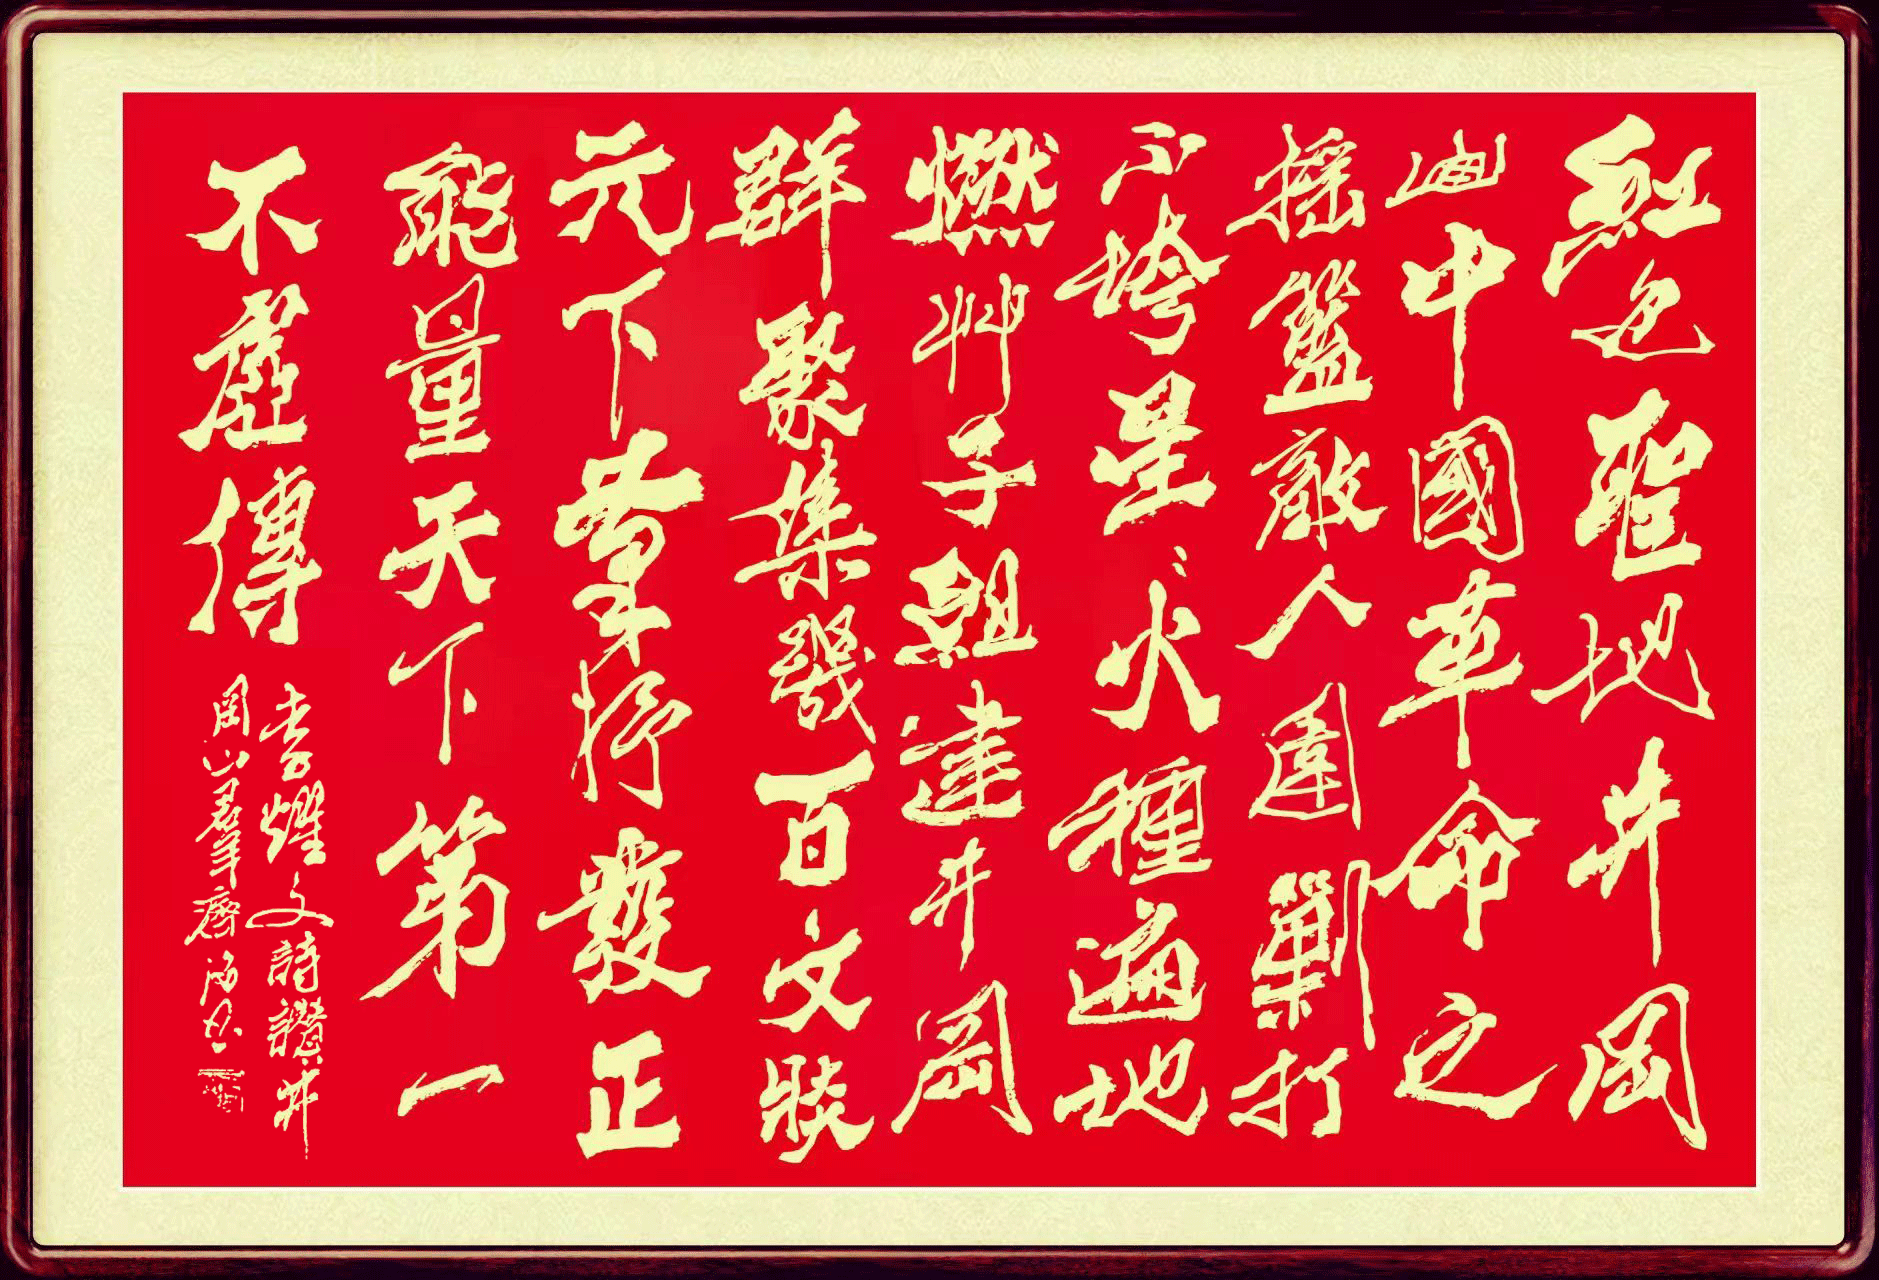 紅色聖地井岡
山中國革命之
摇籃敵人圍剿打
不垮星火種遍地
燃艸子組建井岡
群聚集幾百文狀
元下筆抒發正
能量天下第一
不虛傳
李耀文詩讚井
岡山羣